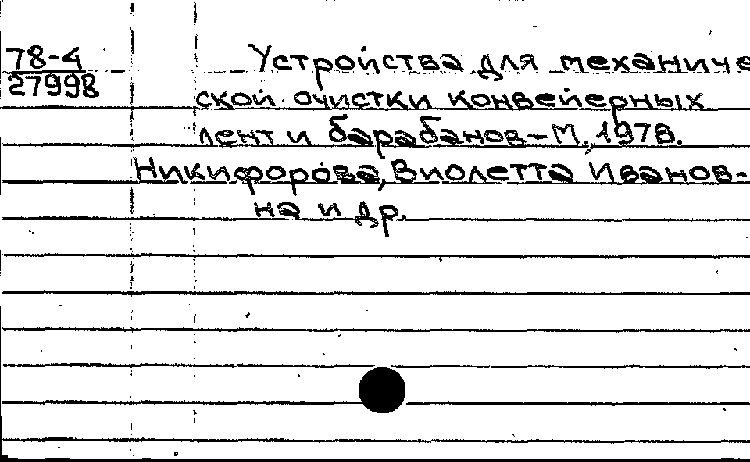 78-4
27998
Устройства для механиче
ской очистки конвейерных
лент и барабанов-М., 1978.
Никифорова, Виолетта Иванов-
на и др.